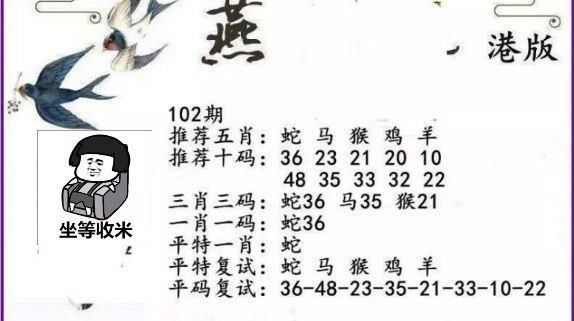 燕
港版
102期
推荐五肖: 蛇 马 猴 鸡 羊
推荐十码: 36 23 21 20 10
48 35 33 32 22
三肖三码: 蛇36 马35 猴21
一肖一码: 蛇36
平特一肖: 蛇
平特复试: 蛇 马 猴 鸡 羊
平码复试: 36-48-23-35-21-33-10-22
坐等收米